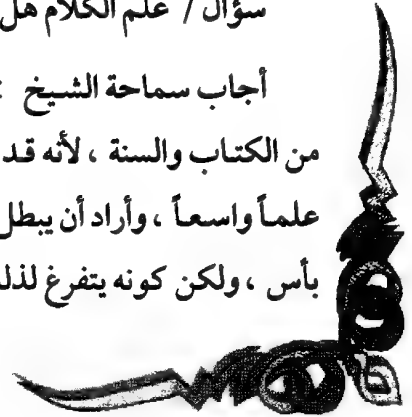 سؤال / علم الكلام هل
أجاب سماحة الشيخ :
من الكتاب والسنة ، لأنه قد
علماً واسعاً ، وأراد أن يبطل
بأس ، ولكن كونه يتفرغ لذلك